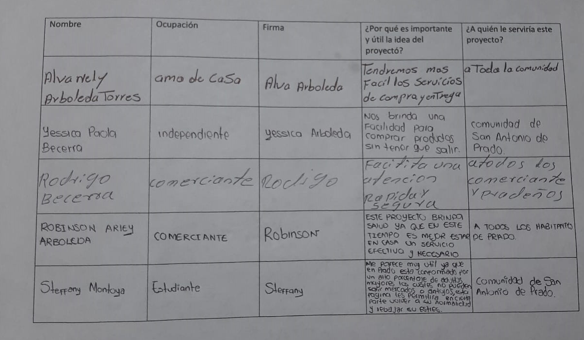 Nombre
Ocupación
Firma
¿Por qué es importante
y útil la idea del
proyectó?
¿A quién le serviría este
proyecto?
Alva Nely
Arboleda Torres
ama de CaSa
Alva Arboleda
Tendremos mas
Facil los Servicios
de compra y entrega
a Toda la comunidad
Yessica Paola
Becerra
independiente
yessica Arboleda
Nos brinda una
Facilidad para
comprar productos
sin tener que salir.
comunidad de
San Antonio de
Prado.
Rodrigo
Becerra
comerciante
Rodrigo
Facilito una
atencion
Rapida y
segura
a todos los
comerciante
y pradeños
ROBINSON ARLEY
ARBOLEDA
COMERCIANTE
Robinson
ESTE PROYECTO BRINDA
SALUD YA QUE EN ESTE
TIEMPO ES MEJOR ESTAR
EN CASA UN SERVICIO
EFECTIVO Y NECESARIO
A TODOS LOS HABITANTES
DE PRADO
Steffany Montoya
Estudiante
Steffany
Me parece muy util ya que
en Prado esta conformado por
un alto porcentaje de adultos
mayores los cuales no pueden
salir
pagina les permitira en cierta
parte volver a su normalidad
y
Comunidad de San
Antonio de Prado.